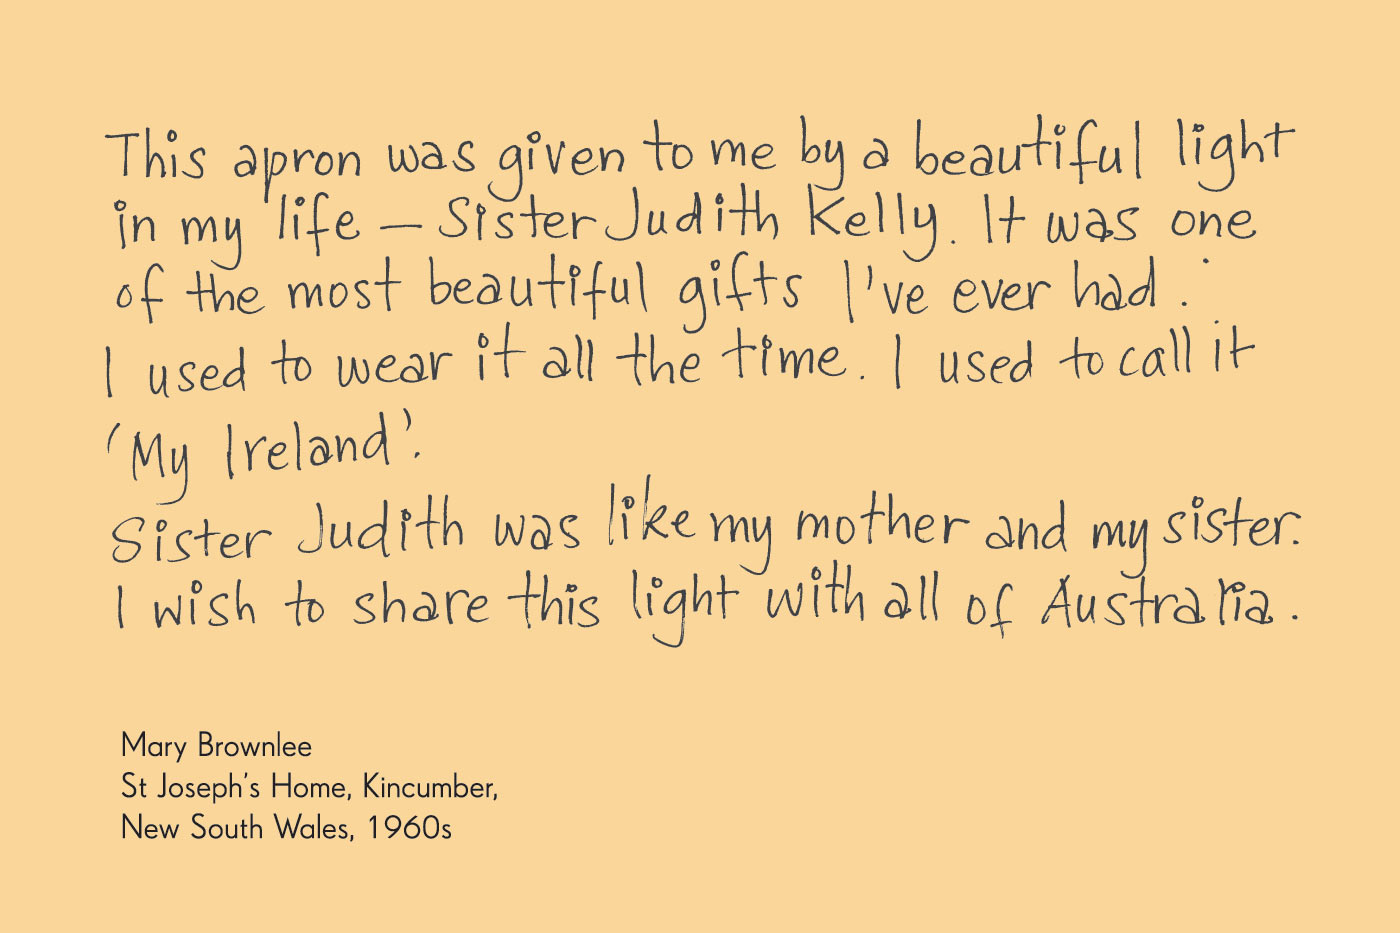 This apron was given to me by a beautiful light
in my life – Sister Judith Kelly. It was one
of the most beautiful gifts I've ever had.
I used to wear it all the time. I used to call it
'My Ireland'.
Sister Judith was like my mother and my sister.
I wish to share this light with all of Australia.
Mary Brownlee
St Joseph's Home, Kincumber,
New South Wales, 1960s